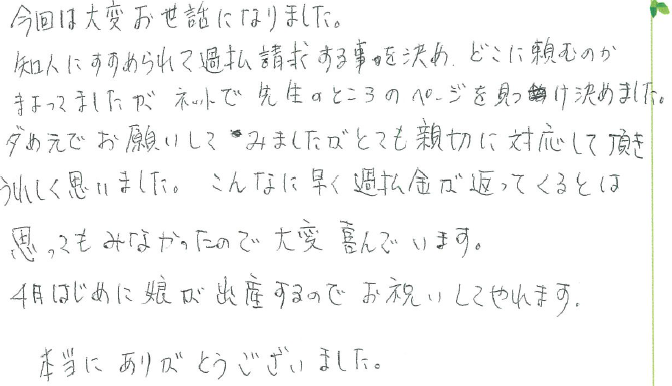 今回は大変お世話になりました。
知人にすすめられて過払請求する事を決め、どこに頼むのか
まよってましたが ネットで先生のところのページを見つけ決めました。
ダメ元でお願いしてみましたがとても親切に対応して頂き
うれしく思いました。こんなに早く過払金が返ってくるとは
思ってもみなかったので大変喜んでいます。
4月はじめに娘が出産するのでお祝いしてやれます。
本当にありがとうございました。